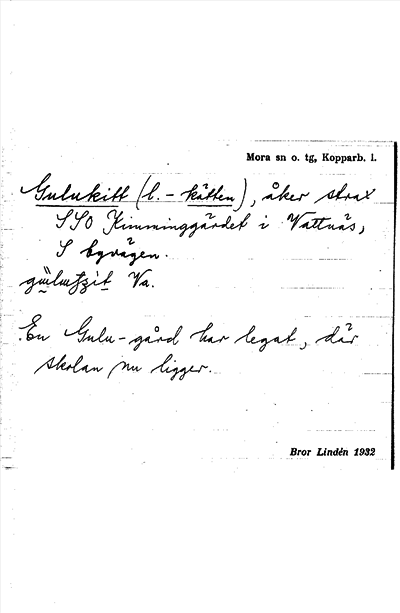 Mora sn o. tg, Kopparb. l.
Gulukitt (l. - kätten), åker strax
SSO Kimminggärdet i Vattnäs,
S byvägen.
Va.
En Gulu-gård har legat, där
skolan nu ligger.
Bror Lindén 1932